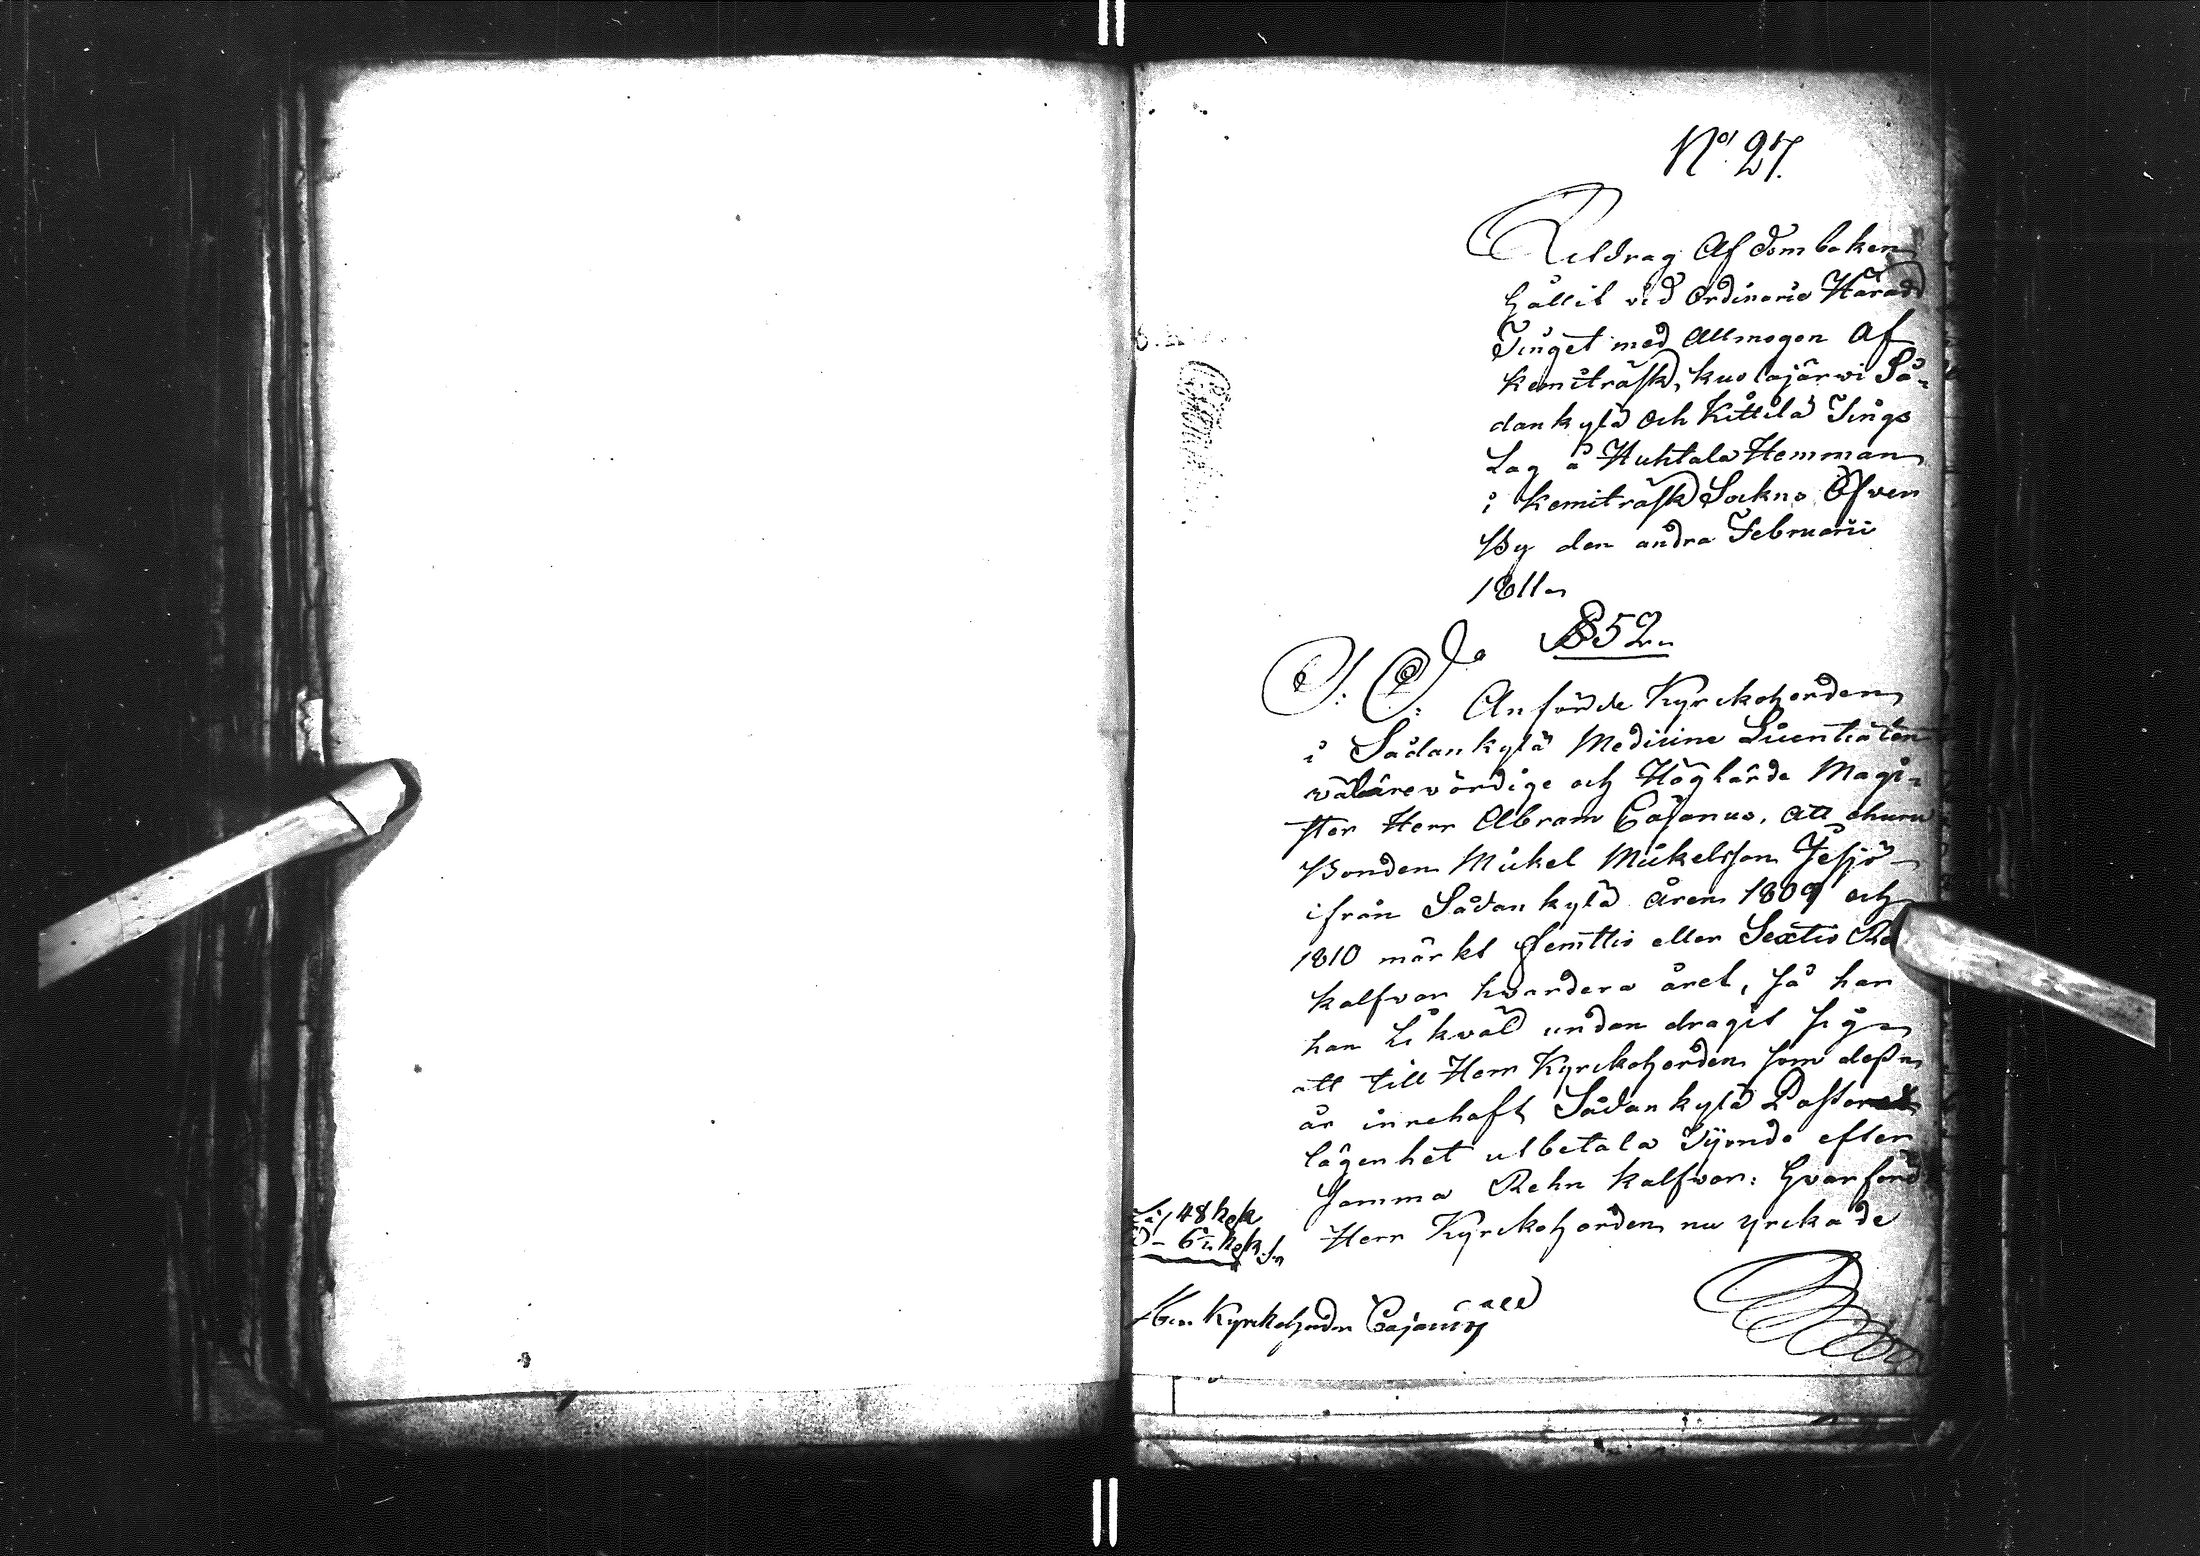 No. 27.
Utdrag Af Domboken
hållit vid Ordinarie Härads
Tinget med Allmogen Af
Kemiträsk, Kuolajärvi So-
dankylä och Kittilä Tings
Lag å Huhtala Hemman
i Kemiträsk Sockns Öfver
By den andra Februarii
1811.
§ 52.
S. D. Anförde Kyrckoherden
i Sådankylä Medicine Licentiaten
välärevördige och Höglärde Magi-
ster Herr Abram Cajanus, att ehuru
Bonden Mickel Mickelsson Jesjö
ifrån Sådankylä åren 1809 och
1810 märkt femttio eller Sextio Re
kalfvar hvardera året, så har
han Likväl undandragit sig
att till Herr Kyrckoherden som dessa
år innehaft Sådankylä Pastorat
lägenhet utbetala Tijonde efter
samma Rehn kalfvar: hvarföre
Herr Kyrckoherden nu yrckade
48 kopk
Kyrckoherden Cajanus